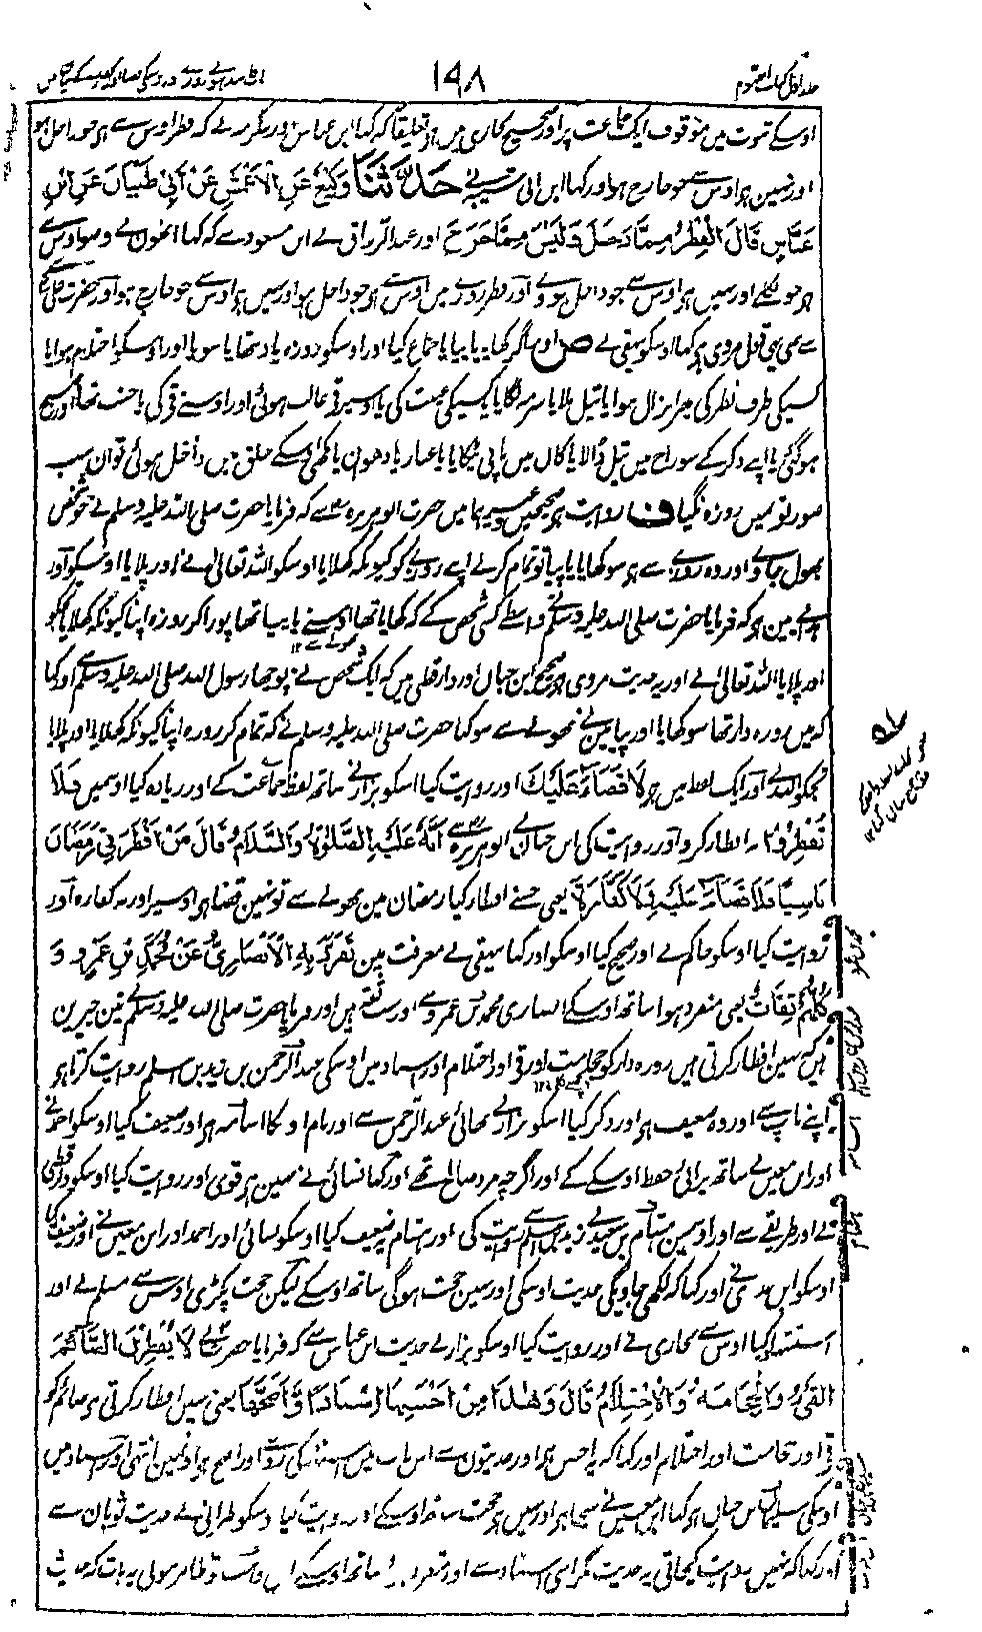 ۱۹۸
اوسکے ثبوت میں موقوف ایک جماعت پر اور صحیح بخاری میں ہے تعلیقا کہ کہا ابن عباس اور عکرمہ نے کہ فطر اوس سے ہے جو داخل ہو
اور نہین ہے اوس سے جو خارج ہو اور کہا ابن ابی شیبہ نے حَدَّثَنَا وَكِيعٌ عَنِ الْأَعْمَشِ عَنْ أَبِي ظَبْيَانَ عَنِ ابْنِ
عَبَّاسٍ قَالَ الْفِطْرُ مِمَّا دَخَلَ وَلَيْسَ مِمَّا خَرَجَ اور عبد الرزاق نے ابن مسعود سے کہ کہا انھون نے وضو اوس سے
ہے جو نکلے اور نہیں ہے اوس سے جو داخل ہووے اور فطر روزے میں اوس سے ہے جو داخل ہو اور نہیں ہے اوس سے جو خارج ہو اور حضرت علی
سے بھی یہی قول مروی ہے کہا اوسکو بیہقی نے ص اور اگر کھایا یا پیا یا جماع کیا اور اوسکو روزہ یاد نتھا یا سویا اور اوسکو احتلام ہوا یا
کسی کی طرف نظر کی پھر انزال ہوا یا تیل ملا یا سرمہ لگایا یا کسی کی غیبت کی یا اوسپر قے غالب ہوئی اور اوسنے قے کی یا جنب تھا اور صبح
ہو گئی یا اپنے ذکر کے سوراخ میں تیل ڈالا یا کان میں پانی ٹپکایا یا غبار یا دھون یا مکھی اوسکے حلق میں داخل ہوئی تو ان سب
صورتو نمیں روزہ نگیا ف روایت ہے صحیحین وغیرہما میں حضرت ابو ہریرہ سے کہ فرمایا حضرت صلی اللہ علیہ وسلم نے جو شخص
بھول جاوے اور وہ روزے سے ہے سو کھایا یا پیا تو تمام کرلے اپنے روزے کو کیونکہ کھلایا اوسکو اللہ تعالی نے اور پلایا اوسکو اور
ہے مین ہے کہ فرمایا حضرت صلی اللہ علیہ وسلم نے واسطے کسی شخص کے کہ کھایا تھا اوسنے یا پیا تھا پورا کر روزہ اپنا کیونکہ کھلایا تجکو
اور پلایا اللہ تعالی نے اور یہ حدیث مروی ہے صحیح ابن حبان اور دارقطنی میں کہ ایک شخص نے پوچھا رسول اللہ صلی اللہ علیہ وسلم سے اور کہا
کہ میں روزہ دار تھا سو کھایا اور پیا میں نے بھولے سے سو کہا حضرت صلی اللہ علیہ وسلم نے کہ تمام کر روزہ اپنا کیونکہ کھلایا اور پلایا
تجکو اللہ نے اور ایک لفظ میں ہے وَلَا قَضَاءَ عَلَيْكَ اور روایت کیا اسکو بزار نے ساتھ لفظ جماعت کے اور زیادہ کیا اوسمیں فَلَا
تُفْطِرُوْا نہ افطار کرو اور روایت کی ابن حبان نے ابو ہریرہ سے أَنَّهُ عَلَيْهِ الصَّلٰوةُ وَالسَّلَامُ قَالَ مَنْ أَفْطَرَ فِي رَمَضَانَ
نَاسِيًا فَلَا قَضَاءَ عَلَيْهِ وَلَا كَفَّارَةَ یعنی جسنے افطار کیا رمضان مین بھولے سے تو نہین قضا ہے اوسپر اور نہ کفارہ اور
روایت کیا اوسکو حاکم نے اور صحیح کیا اوسکو اور کہا بیہقی نے معرفت میں تَفَرَّدَ بِهِ الْأَنْصَارِيُّ عَنْ مُحَمَّدِ بْنِ عَمْرٍو وَ
كُلُّهُمْ ثِقَاتٌ یعنی منفرد ہوا ساتھ اوسکے انصاری محمد بن عمرو سے اور سب ثقہ ہیں اور فرمایا حضرت صلی اللہ علیہ وسلم نے تین چیزین
ہیں کہ نہین افطار کرتی ہیں روزہ دار کو حجامت اور قے اور احتلام اور اسناد میں اوسکی عبد الرحمن بن زید بن اسلم روایت کرتا ہے
اپنے باپ سے اور وہ ضعیف ہے اور ذکر کیا اسکو بزار نے بھائی عبد الرحمن سے اور نام اوسکا اسامہ ہے اور ضعیف کیا اوسکو احمد نے
اور ابن معین نے ساتھ برائی حفظ اوسکے کے اور اگرچہ مرد صالح تھے اور کہا نسائی نے نہین ہے قوی اور روایت کیا اوسکو دارقطنی
نے اور طریقے سے اور اوسمین ہشام بن سعد نے زید بن اسلم سے روایت کی اور ہشام ضعیف کیا اوسکو نسائی اور احمد اور ابن معین نے اور ضعیف کہا
اوسکو ابن عدی نے اور کہا کہ لکھی جاویگی حدیث اوسکی اور نہین حجت ہوگی ساتھ اوسکے لیکن حجت پکڑی اوس سے مسلم نے اور
استشہاد کیا اوس سے بخاری نے اور روایت کیا اوسکو بزار نے حدیث ابن عباس سے کہ فرمایا حضرت نے لَا يُفْطِرْنَ الصَّائِمَ
الْقَيْءُ وَالْحِجَامَةُ وَالْاِحْتِلَامُ قَالَ وَهٰذَا مِنْ أَحْسَنِهَا إِسْنَادًا وَّأَصَحِّهَا یعنی نہیں افطار کرتی ہے صائم کو
قے اور حجامت اور احتلام اور کہا کہ یہ احسن ہے اور حدیثوں سے اس باب میں اسناد کی رو سے اور اصح ہے اونمین انتہی اور اسناد میں
اوسکی سلیمان بن حبان ہے کہا ابن معین نے سچا ہے اور نہیں ہے حجت ساتھ اوسکے اور روایت کیا اوسکو طبرانی نے حدیث ثوبان سے
اور کہا کہ نہیں روایت کیجاتی یہ حدیث مگر اسی اسناد سے اور تفرد ساتھ اوسکے ابن وہب تو ظاہر ہوئی یہ بات کہ حدیث